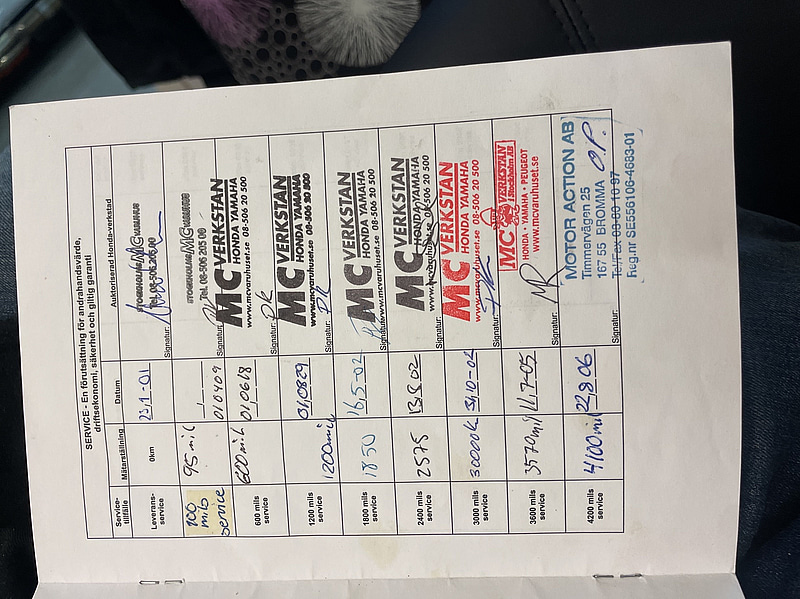 SERVICE - En förutsättning för andrahandsvärde,
driftsekonomi, säkerhet och giltig garanti
Service-
tillfälle
Mätarställning
Datum
Auktoriserad Honda-verkstad
Leverans-
service
0km
23,1-01
Tel. 08-506 205 00
Signatur:
100
mils
service
95 mil
010409
STOCKHOLMS MC VARUHUS
Tel. 08-506 205 00
Signatur:
600 mils
service
600 mil
01,0618
MC VERKSTAN
HONDA YAMAHA
www.mcvaruhuset.se 08-506 20 500
Signatur: DK
1200 mils
service
1200 mil
01,0829
MC VERKSTAN
HONDA YAMAHA
www.mcvaruhuset.se 08-506 20 500
Signatur: DK
1800 mils
service
1850
16,5-02
MC VERKSTAN
HONDA YAMAHA
www.mcvaruhuset.se 08-506 20 500
Signatur:
2400 mils
service
2575
MC VERKSTAN
HONDA YAMAHA
www.mcvaruhuset.se 08-506 20 500
Signatur:
3000 mils
service
MC VERKSTAN
HONDA YAMAHA
www.mcvaruhuset.se 08-506 20 500
Signatur:
3600 mils
service
3570 mil
11,7-05
MC VERKSTAN
I Stockholm AB
HONDA • YAMAHA • PEUGEOT
www.mcvaruhuset.se
Signatur:
4200 mils
service
4100 mil
22,8 06
MOTOR ACTION AB
Timmervägen 25
167 55 BROMMA
Reg.nr SE556106-4683-01
Signatur: